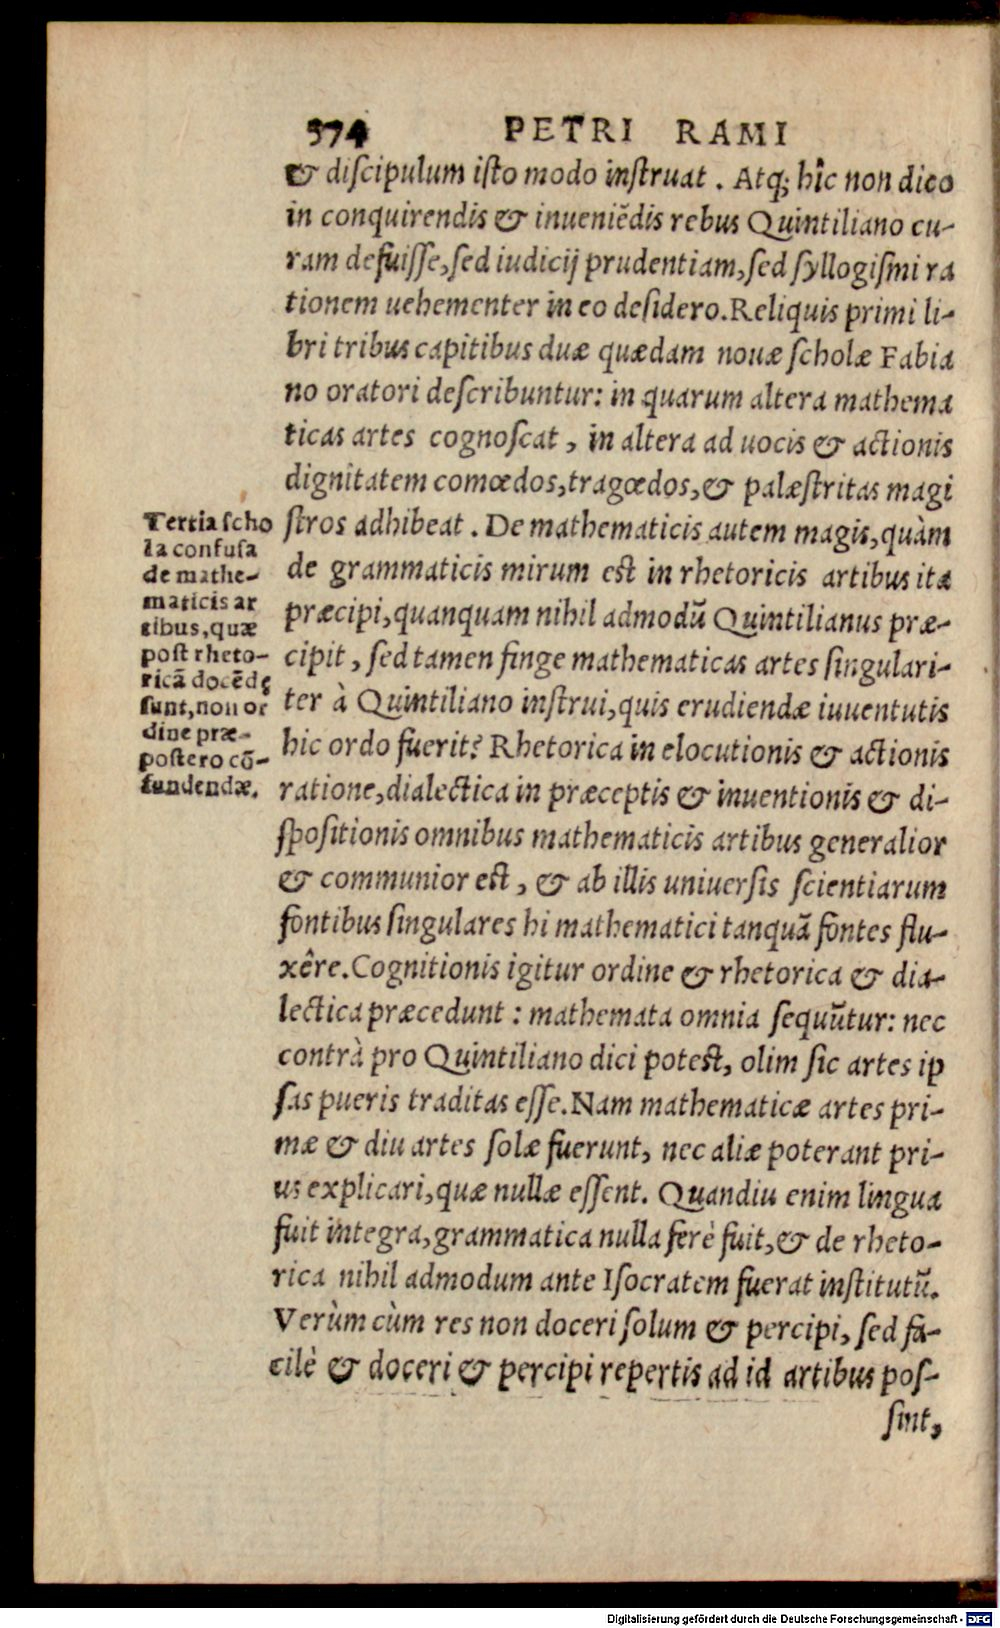 374 PETRI RAMI
& diſcipulum iſto modo inſtruat. Atq; hîc non dico
in conquirendis & inueniẽdis rebus Quintiliano cu-
ram defuiſſe, ſed iudicij prudentiam, ſed ſyllogiſmi ra
tionem uehementer in eo deſidero. Reliquis primi li-
bri tribus capitibus duæ quædam nouæ ſcholæ Fabia
no oratori deſcribuntur: in quarum altera mathema
ticas artes cognoſcat, in altera ad uocis & actionis
dignitatem comœdos, tragœdos, & palæſtritas magi
ſtros adhibeat. De mathematicis autem magis, quàm
de grammaticis mirum est in rhetoricis artibus ita
præcipi, quanquam nihil admodũ Quintilianus præ-
cipit, ſed tamen finge mathematicas artes ſingulari-
ter à Quintiliano inſtrui, quis erudiendæ iuuentutis
hic ordo fuerit? Rhetorica in elocutionis & actionis
ratione, dialectica in præceptis & inuentionis & di-
ſpoſitionis omnibus mathematicis artibus generalior
& communior est, & ab illis uniuerſis ſcientiarum
fontibus ſingulares hi mathematici tanquã fontes flu-
xêre. Cognitionis igitur ordine & rhetorica & dia-
lectica præcedunt: mathemata omnia ſequũtur: nec
contrà pro Quintiliano dici potest, olim ſic artes ip
ſas pueris traditas eſſe. Nam mathematicæ artes pri-
mæ & diu artes ſolæ fuerunt, nec aliæ poterant pri-
us explicari, quæ nullæ eſſent. Quandiu enim lingua
fuit integra, grammatica nulla ferè fuit, & de rheto-
rica nihil admodum ante Iſocratem fuerat inſtitutũ.
Verùm cùm res non doceri ſolum & percipi, ſed fa-
cilè & doceri & percipi repertis ad id artibus poſ-
ſint,
Tertia ſcho
la confuſa
de mathe-
maticis ar
tibus, quæ
poſt rheto-
ricã docẽdę
ſunt, non or
dine præ-
poſtero cõ-
fundendæ.
Digitalisierung gefördert durch die Deutsche Forschungsgemeinschaft - DFG